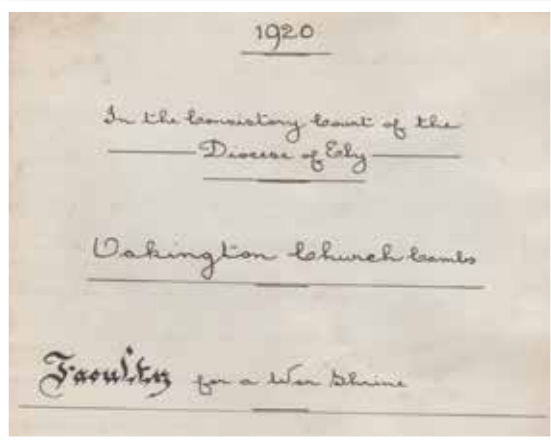 1920
In the Consistory Court of the
Diocese of Ely
Oakington Church Cambs
Faculty for a War Shrine